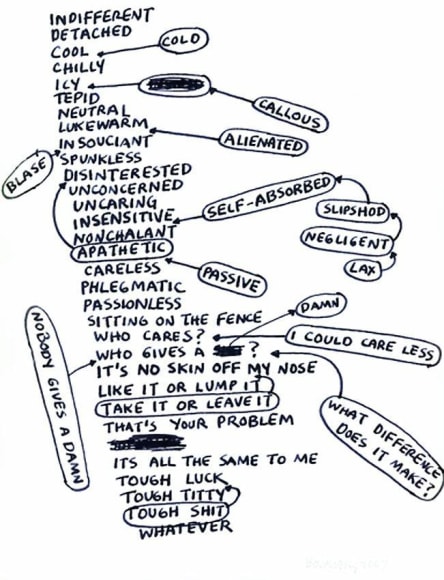 INDIFFERENT
DETACHED
COOL
COLD
CHILLY
ICY
TEPID
CALLOUS
NEUTRAL
LUKEWARM
INSOUCIANT
ALIENATED
BLASE
SPUNKLESS
DISINTERESTED
UNCONCERNED
UNCARING
SELF-ABSORBED
SLIPSHOD
INSENSITIVE
NONCHALANT
NEGLIGENT
APATHETIC
LAX
CARELESS
PASSIVE
PHLEGMATIC
PASSIONLESS
DAMN
SITTING ON THE FENCE
WHO CARES?
I COULD CARE LESS
WHO GIVES A ?
IT'S NO SKIN OFF MY NOSE
LIKE IT OR LUMP IT
TAKE IT OR LEAVE IT
NOBODY GIVES A DAMN
THAT'S YOUR PROBLEM
WHAT DIFFERENCE
DOES IT MAKE?
ITS ALL THE SAME TO ME
TOUGH LUCK
TOUGH TITTY
TOUGH SHIT
WHATEVER